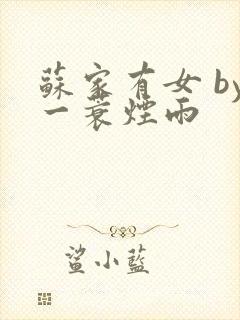 蘇家有女 by
一蓑煙雨
鯊小藍